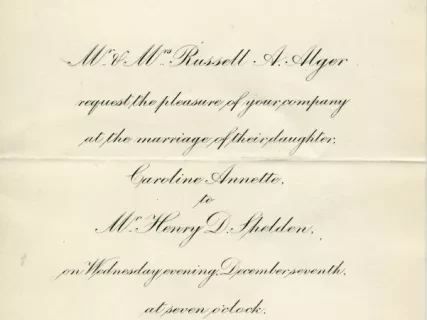 Mr. & Mrs. Russell A. Alger
request the pleasure of your company
at the marriage of their daughter,
Caroline Annette,
to
Mr. Henry D. Shelden,
on Wednesday evening, December seventh,
at seven o'clock.